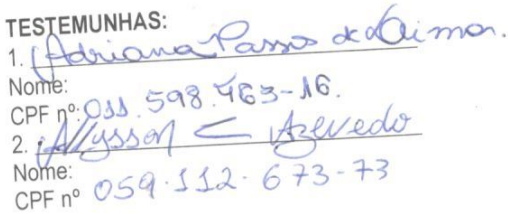 TESTEMUNHAS:
1. Adriana Passos de Lima.
Nome:
CPF nº: 011.598.463-16.
2. Allysson C Azevedo
Nome:
CPF nº 059.112.673-73